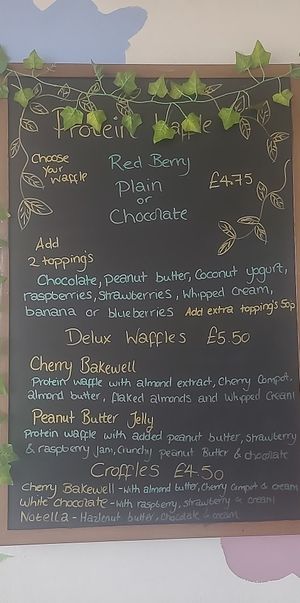 Protein Waffle
Choose Your Waffle
Red Berry
Plain
or
Chocolate
£4.75
Add
2 topping's
Chocolate, peanut butter, Coconut yogurt,
raspberries, Strawberries, Whipped Cream,
banana or blueberries Add extra topping's 50p
Delux Waffles £5.50
Cherry Bakewell
Protein waffle with almond extract, Cherry Compot,
almond butter, flaked almonds and Whipped Cream
Peanut Butter Jelly
Protein waffle with added peanut butter, strawberry
& raspberry jam, Crunchy peanut Butter & chocolate
Croffles £4.50
Cherry Bakewell - with almond butter, Cherry Compot & cream
White Chocolate - with raspberry, strawberry & cream
Notella - Hazlenut butter, Chocolate & cream